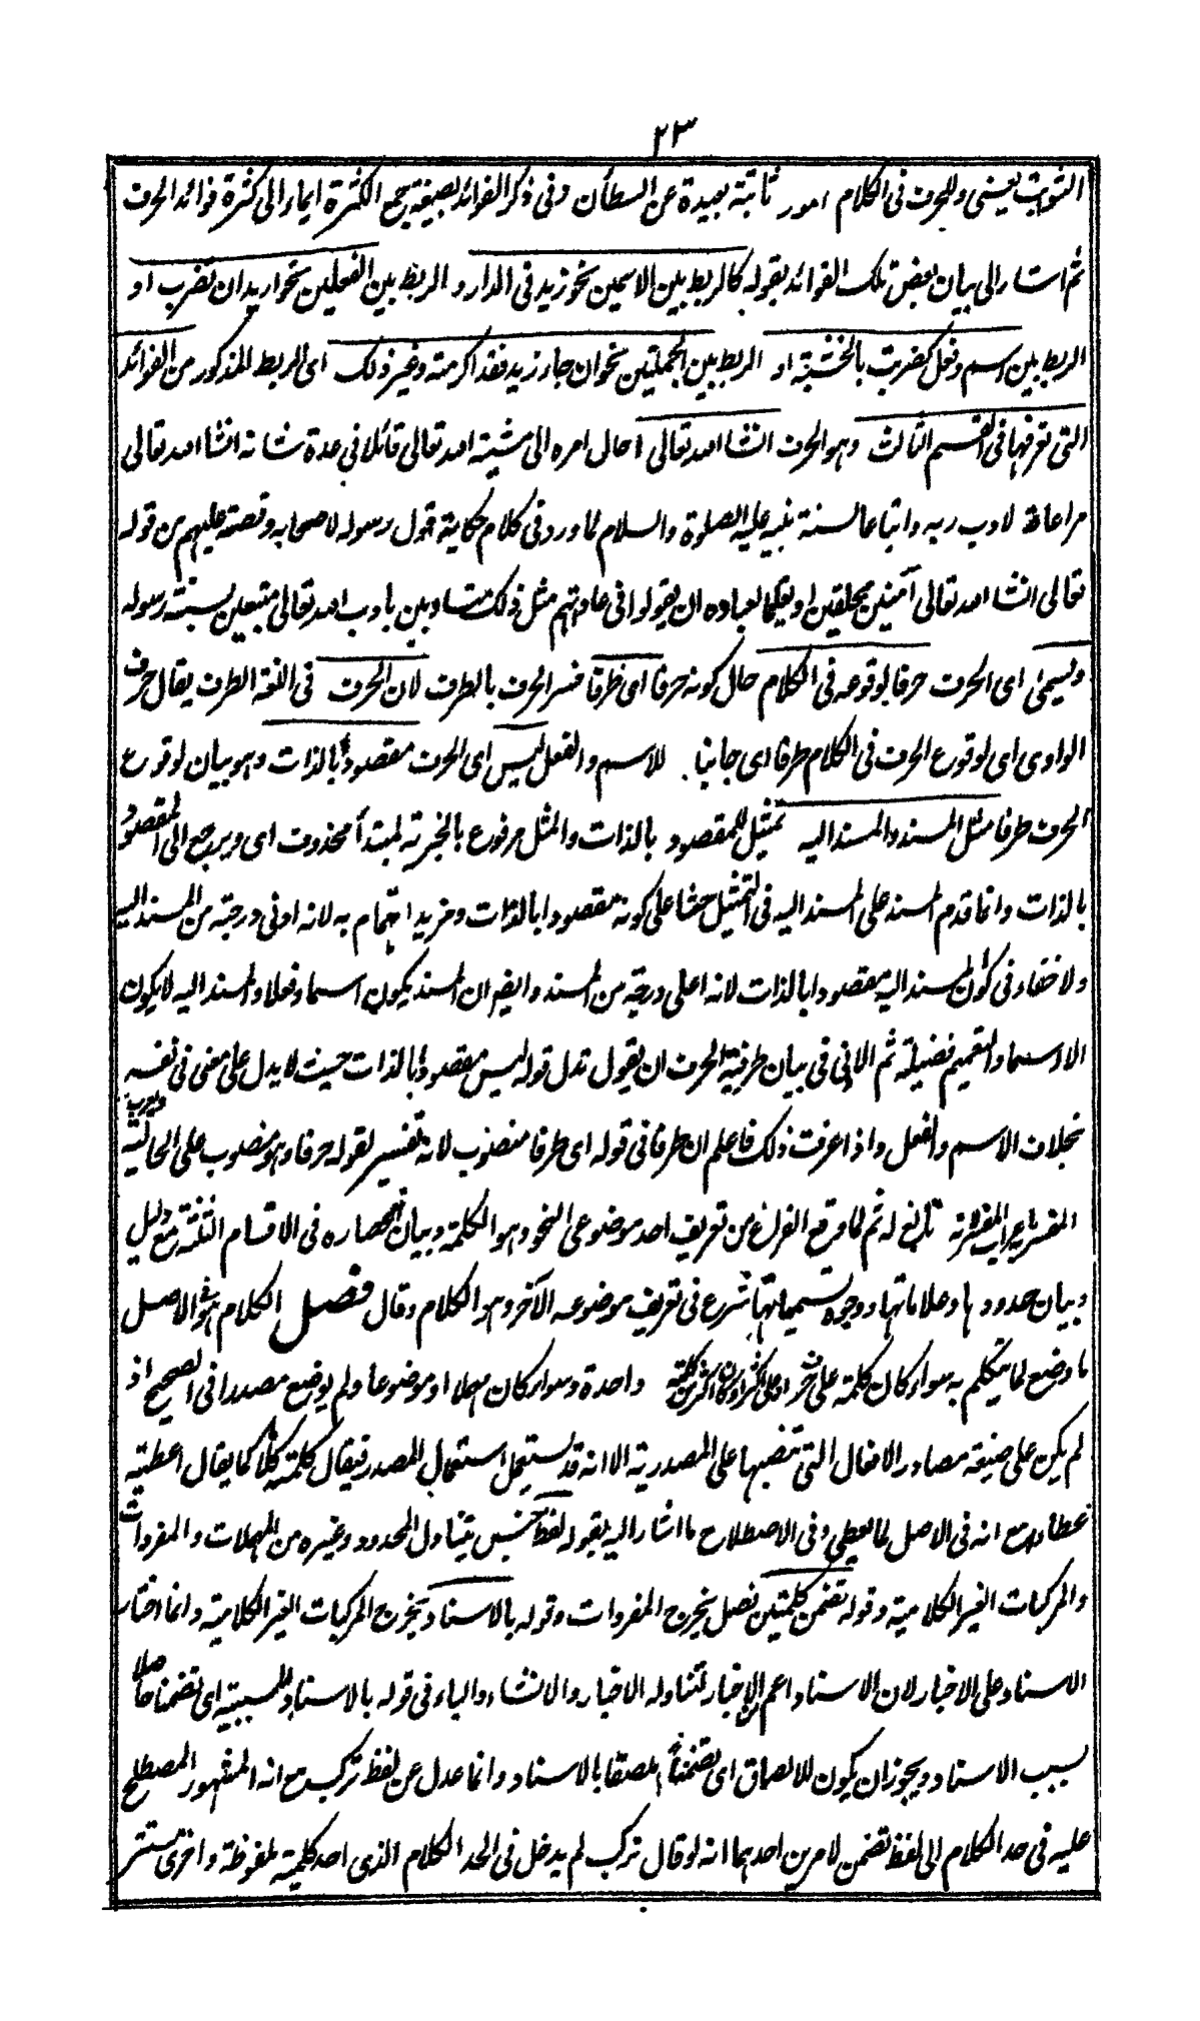 ٢٣
التثويب يعني وللحرف في الكلام امور ثابتة بعيدة عن البطلان وفي ذكر الفوائد بصيغة جمع الكثرة ايماء الى كثرة فوائد الحرف
ثم اشار الى بيان بعض تلك الفوائد بقوله كالربط بين الاسمين نحو زيد في الدار والربط بين الفعلين نحو اريد ان تضرب او
الربط بين اسم وفعل كضربت بالخشبة او الربط بين الجملتين نحو ان جاء زيد فقد اكرمته وغير ذلك اى الربط المذكور من الفوائد
التي تعرفها في القسم الثالث وهو الحرف انشا الله تعالى احال امره الى مشية الله تعالى قائلا في عدة شانه انشا الله تعالى
مراعاة لادب ربه واتباعا لسنة نبيه عليه الصلوة والسلام لما ورد في كلام حكاية قول رسوله لاصحابه وقصته عليهم من قوله
تعالى انشا الله تعالى آمنين محلقين او تعليما لعباده ان يقولوا في عاداتهم مثل ذلك متادبين بادب الله تعالى متبعين بسنة رسوله
ويسمى اى الحرف حرفا لوقوعه في الكلام حال كونه حرفا اى طرفا فسر الحرف بالطرف لان الحرف في اللغة الطرف يقال حرف
الوادى اى لوقوع الحرف في الكلام طرفا اى جانبا للاسم والفعل ليس اى الحرف مقصودا بالذات وهو بيان لوقوع
الحرف طرفا مثل المسند والمسند اليه تمثيل للمقصود بالذات والمثل مرفوع بالخبرية لمبتدأ محذوف اى ويرجع الى المقصود
بالذات وانما قدم المسند على المسند اليه في التمثيل حثا على كونه مقصودا بالذات ومزيد اهتمام به لانه ادنى درجة من المسند اليه
ولا خفاء في كون المسند اليه مقصودا بالذات لانه اعلى درجة من المسند وايضا ان المسند يكون اسما وفعلا والمسند اليه لا يكون
الا اسما والتعميم فضيلة ثم الاولى في بيان طرفية الحرف ان يقول بدل قوله ليس مقصودا بالذات حيث لا يدل على معنى في نفسه
بخلاف الاسم والفعل واذا عرفت ذلك فاعلم ان طرفا في قوله اى طرفا منصوب لانه تفسير لقوله حرفا وهو منصوب على الحالية واعراب
المفسر اعراب المفسر لانه تابع له ثم لما وقع الفراغ من تعريف احد موضوعى النحو وهو الكلمة وبيان انحصاره في الاقسام الثلثة مع دليل
وبيان حدودها وعلاماتها ووجوه تسمياتها شرع في تعريف موضوعه الآخر وهو الكلام وقال فصل الكلام هو في الاصل
ما وضع لما يتكلم به سواء كان كلمة على حرف او على اكثر او كان اكثر من كلمة واحدة وسواء كان مهملا او موضوعا ولم يوضع مصدرا في الصحيح اذ
لم يكن على صيغة مصادر الافعال التى تنصبها على المصدرية الا انه قد يستعمل استعمال المصدر فيقال كلمته كلاما كما يقال اعطيته
عطاء مع انه في الاصل لما يعطى وفي الاصطلاح ما اشار اليه بقوله لفظ جنس يتناول المحدود وغيره من المهملات والمفردات
والمركبات الغير الكلامية وقوله تضمن كلمتين فصل يخرج المفردات وقوله بالاسناد يخرج المركبات الغير الكلامية وانما اختار
الاسناد على الاخبار لان الاسناد اعم من الاخبار لتناوله الاخبار والانشاء والباء في قوله بالاسناد للسببية اى تضمنا حاصلا
بسبب الاسناد ويجوز ان يكون للالصاق اى تضمنا ملصقا بالاسناد وانما عدل عن لفظ تركب مع انه المشهور المصطلح
عليه في حد الكلام الى لفظ تضمن لامرين احدهما انه لو قال تركب لم يدخل في الحد الكلام الذى احد كلميته ملفوظة واخرى مستتر